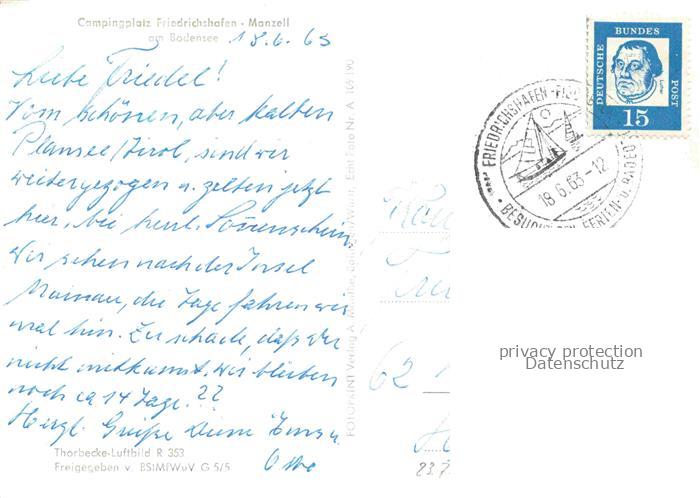 Campingplatz Friedrichshafen - Manzell
am Bodensee
18.6.63
Liebe Friedel!
Vom schönen, aber kalten
Plansee/Tirol, sind wir
weitergezogen u. zelten jetzt
hier, bei herrl. Sonnenschein,
wir sehen nach der Insel
Mainau, die Tage fahren wir
mal hin. Zu schade, daß Ihr
nicht mitkamst. Wir bleiben
noch ca 14 Tage.
Herzl. Grüße Deine
Thorbecke-Luftbild R 353
Freigegeben v. BStMfWuV G 5/5
FOTOPRINT Verlag A.
DEUTSCHE BUNDES POST
15
FRIEDRICHSHAFEN
18.6.63-12
FERIEN- U.
62
23.7
privacy protection
Datenschutz